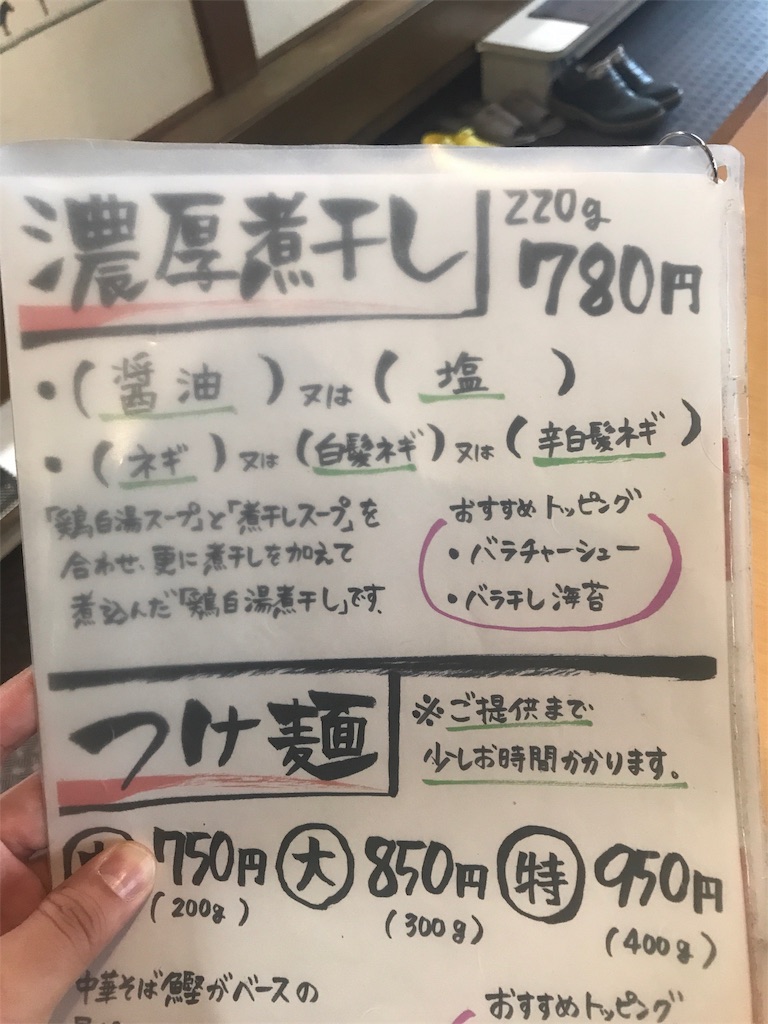 濃厚煮干し
220g
780円
・(醤油)又は(塩)
・(ネギ)又は(白髪ネギ)又は(辛白髪ネギ)
「鶏白湯スープ」と「煮干しスープ」を
合わせ、更に煮干しを加えて
煮込んだ「鶏白湯煮干し」です。
おすすめトッピング
・バラチャーシュー
・バラ干し海苔
つけ麺
※ご提供まで
少しお時間かかります。
750円 大 850円 特 950円
(200g) (300g) (400g)
中華そば鰹がベースの
おすすめトッピング